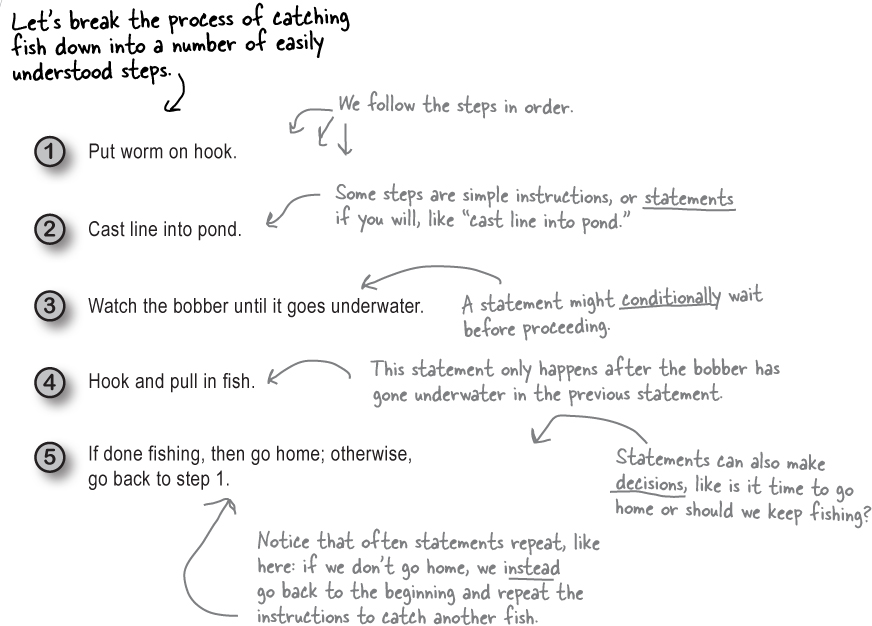 Let's break the process of catching
fish down into a number of easily
understood steps.
We follow the steps in order.
1 Put worm on hook.
Some steps are simple instructions, or statements
if you will, like "cast line into pond."
2 Cast line into pond.
3 Watch the bobber until it goes underwater.
A statement might conditionally wait
before proceeding.
4 Hook and pull in fish.
This statement only happens after the bobber has
gone underwater in the previous statement.
5 If done fishing, then go home; otherwise,
go back to step 1.
Statements can also make
decisions, like is it time to go
home or should we keep fishing?
Notice that often statements repeat, like
here: if we don't go home, we instead
go back to the beginning and repeat the
instructions to catch another fish.